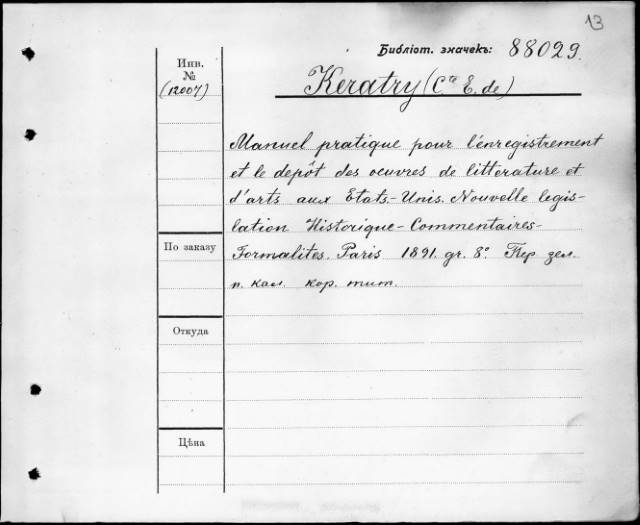 13
Библіот. значекъ: 88029.
Инв.
№
(12007)
Keratry (Cte E. de)
Manuel pratique pour l'enregistrement
et le depôt des oeuvres de littérature et
d'arts aux Etats-Unis. Nouvelle legis-
lation Historique-Commentaires-
Formalites. Paris 1891. gr. 8º. Пер зел.
п. кал. кор. тит.
По заказу
Откуда
Цѣна